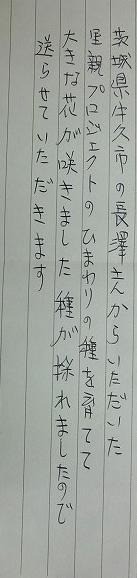 茨城県牛久市の長澤さんからいただいた
里親プロジェクトのひまわりの種を育てて
大きな花が咲きました 種が採れましたので
送らせていただきます